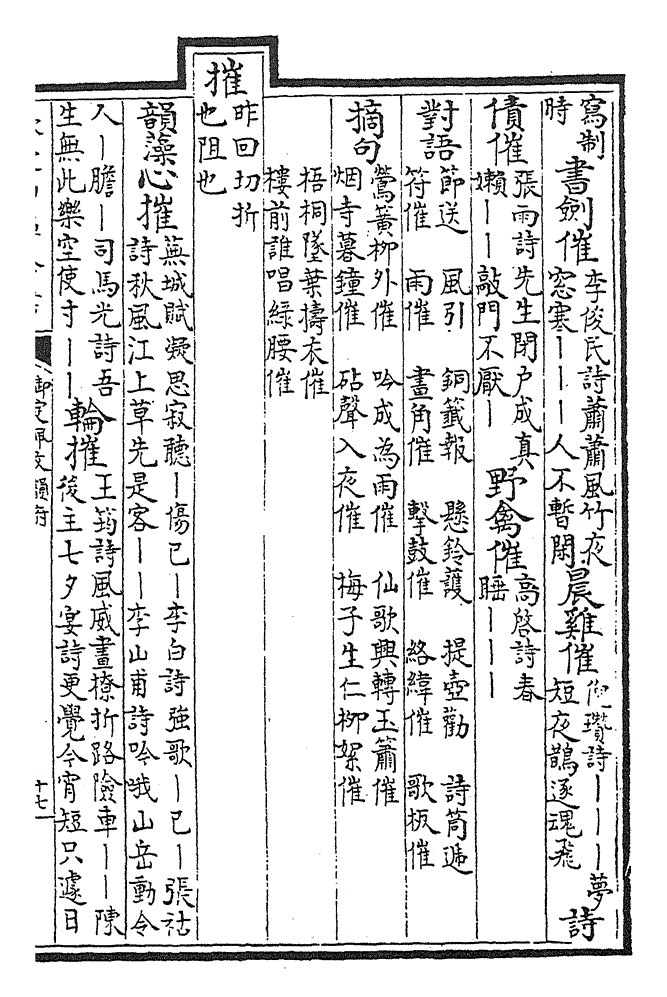 寫制
時
書劍催
李俊民詩蕭蕭風竹夜
窓寒｜｜｜人不暫閑
晨雞催
倪瓚詩｜｜｜夢
短夜鵲逐魂飛
詩
債催
張雨詩先生閉户成真
嬾｜｜敲門不厭｜
野禽催
高啓詩春
睡｜｜｜
對語
節送 風引 銅籤報 懸鈴護 提壺勸 詩筒遞
符催 雨催 畫角催 擊鼓催 絡緯催 歌板催
摘句
鶯簧柳外催 吟成為雨催 仙歌興轉玉簫催
烟寺暮鐘催 砧聲入夜催 梅子生仁柳絮催
梧桐墜葉擣衣催
樓前誰唱綠腰催
摧
昨回切折
也阻也
韻藻心摧
蕪城賦凝思寂聽｜傷已｜李白詩強歌｜已｜張祜
詩秋風江上草先是客｜｜李山甫詩吟哦山岳動令
人｜膽｜司馬光詩吾
生無此樂空使寸｜｜
輪摧
王筠詩風威晝撩折路險車｜｜陳
後主七夕宴詩更覺今宵短只遽日
御定佩文韻府
十七